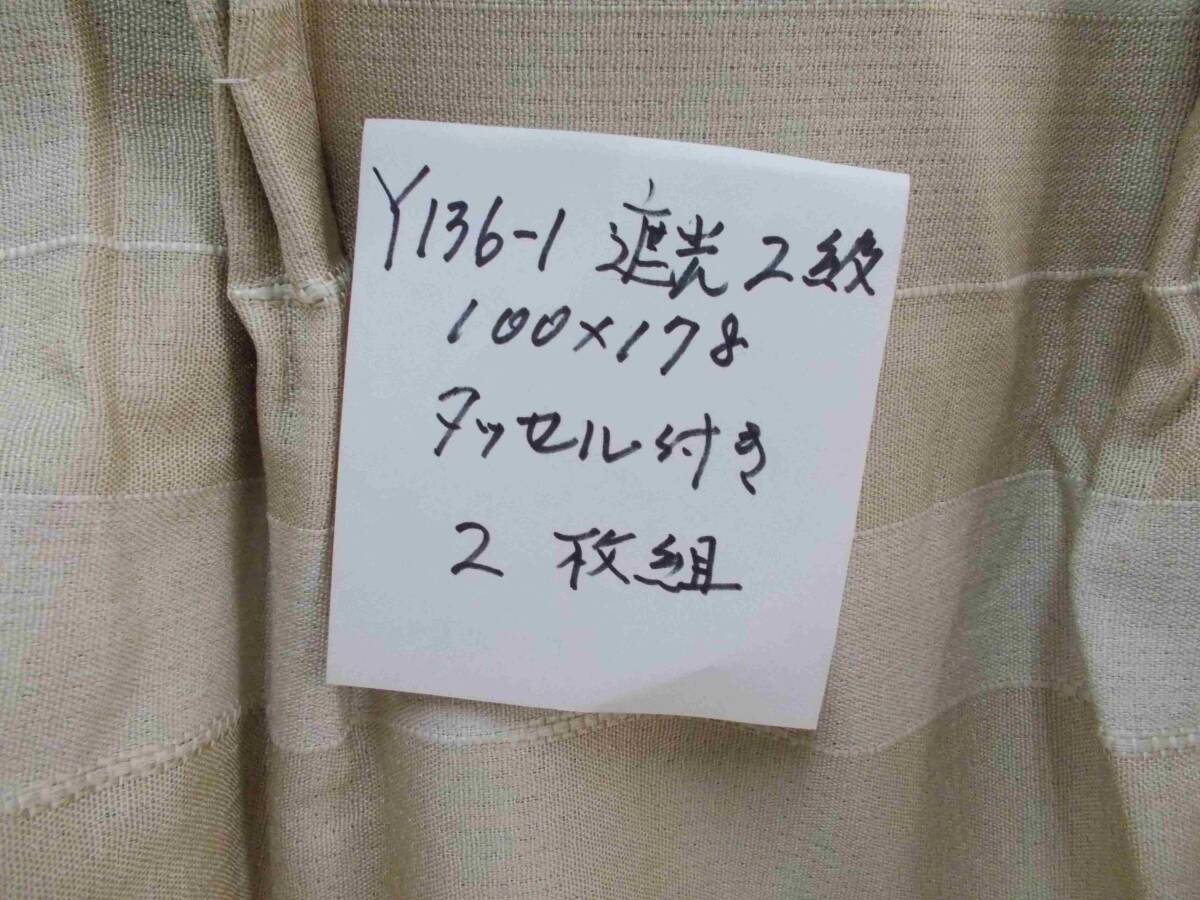 Y136-1 遮光 2級
100×178
タッセル付き
2 枚組